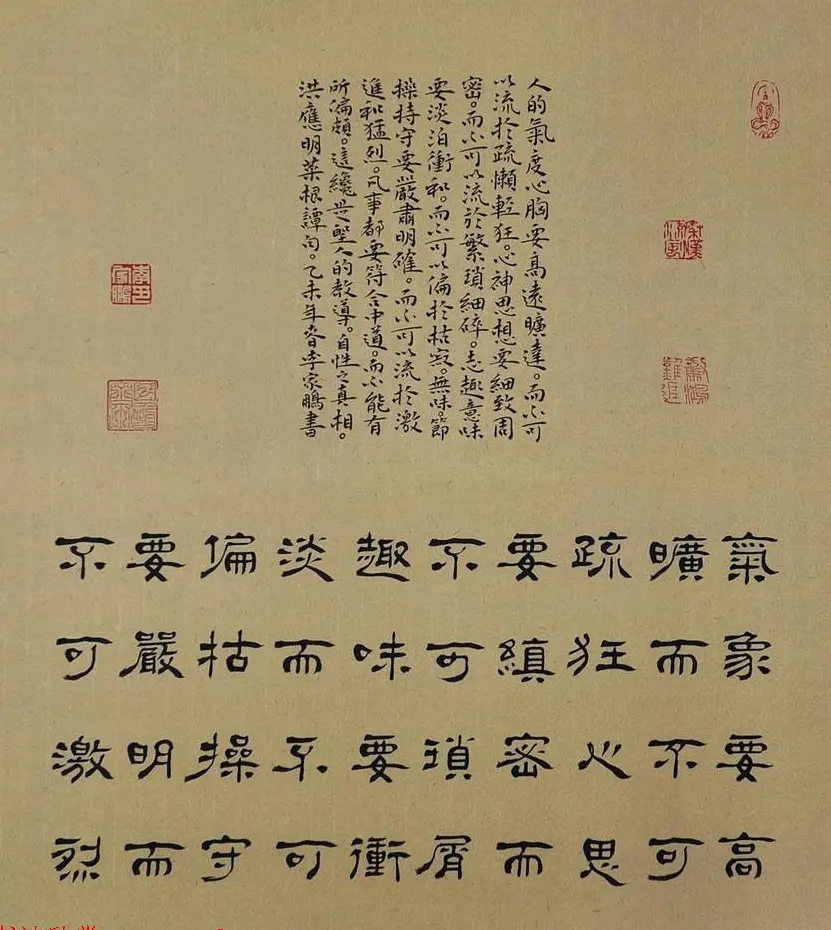 人的氣度心胸要高遠曠達。而不可
以流於疏懶輕狂。心神思想要細致周
密。而不可以流於繁瑣細碎。志趣意味
要淡泊衝和。而不可以偏於枯寂。無味。節
操持守要嚴肅明確。而不可以流於激
進和猛烈。凡事都要符合中道。而不能有
所偏頗。這纔是聖人的教導。自性之真相。
洪應明菜根譚句。乙未年春李家鵬書
氣象要高
曠而不可
疏狂心思
要縝密而
不可瑣屑
趣味要衝
淡而不可
偏枯操守
要嚴明而
不可激烈